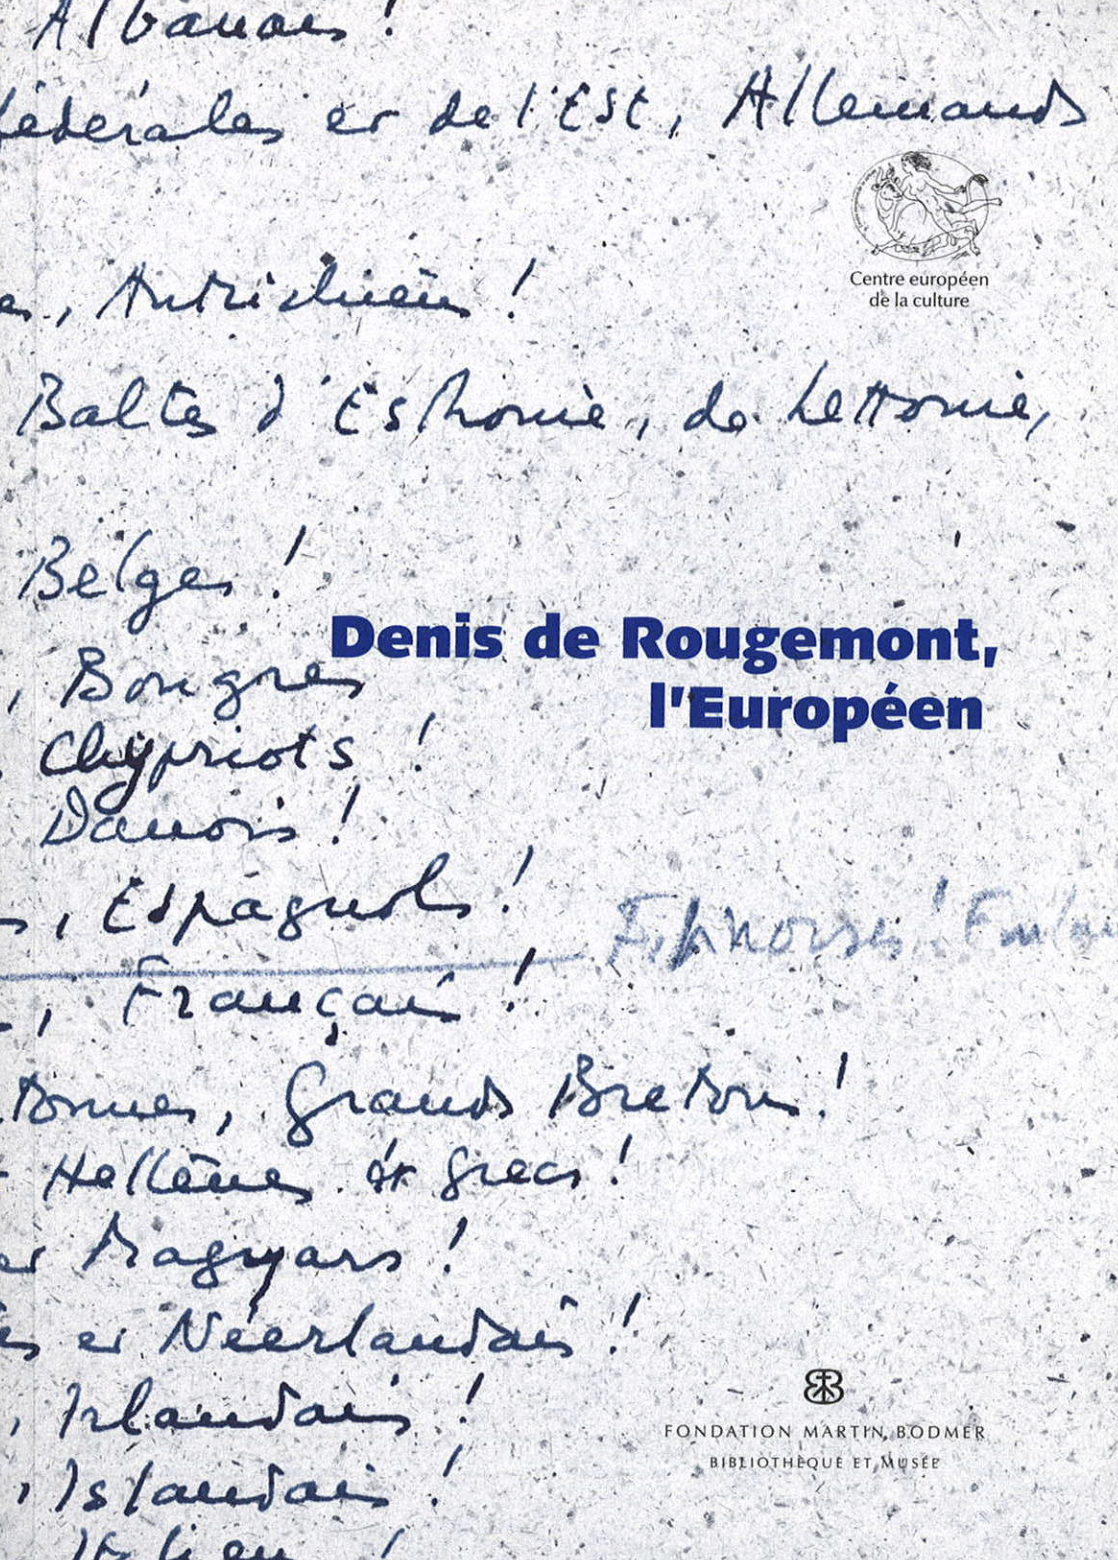 Albanais !
fédérales et de l'Est, Allemands
Centre européen
de la culture
, Autrichiens !
Baltes d'Esthonie, de Lettonie,
Belges !
Denis de Rougemont,
l'Européen
, Bougres
Chypriots !
Danois !
, Espagnols !
, Français !
, Grands Bretons !
Hellènes et Grecs !
et Magyars !
et Néerlandais !
, Irlandais !
, Islandais !
FONDATION MARTIN BODMER
BIBLIOTHÈQUE ET MUSÉE
Italiens !